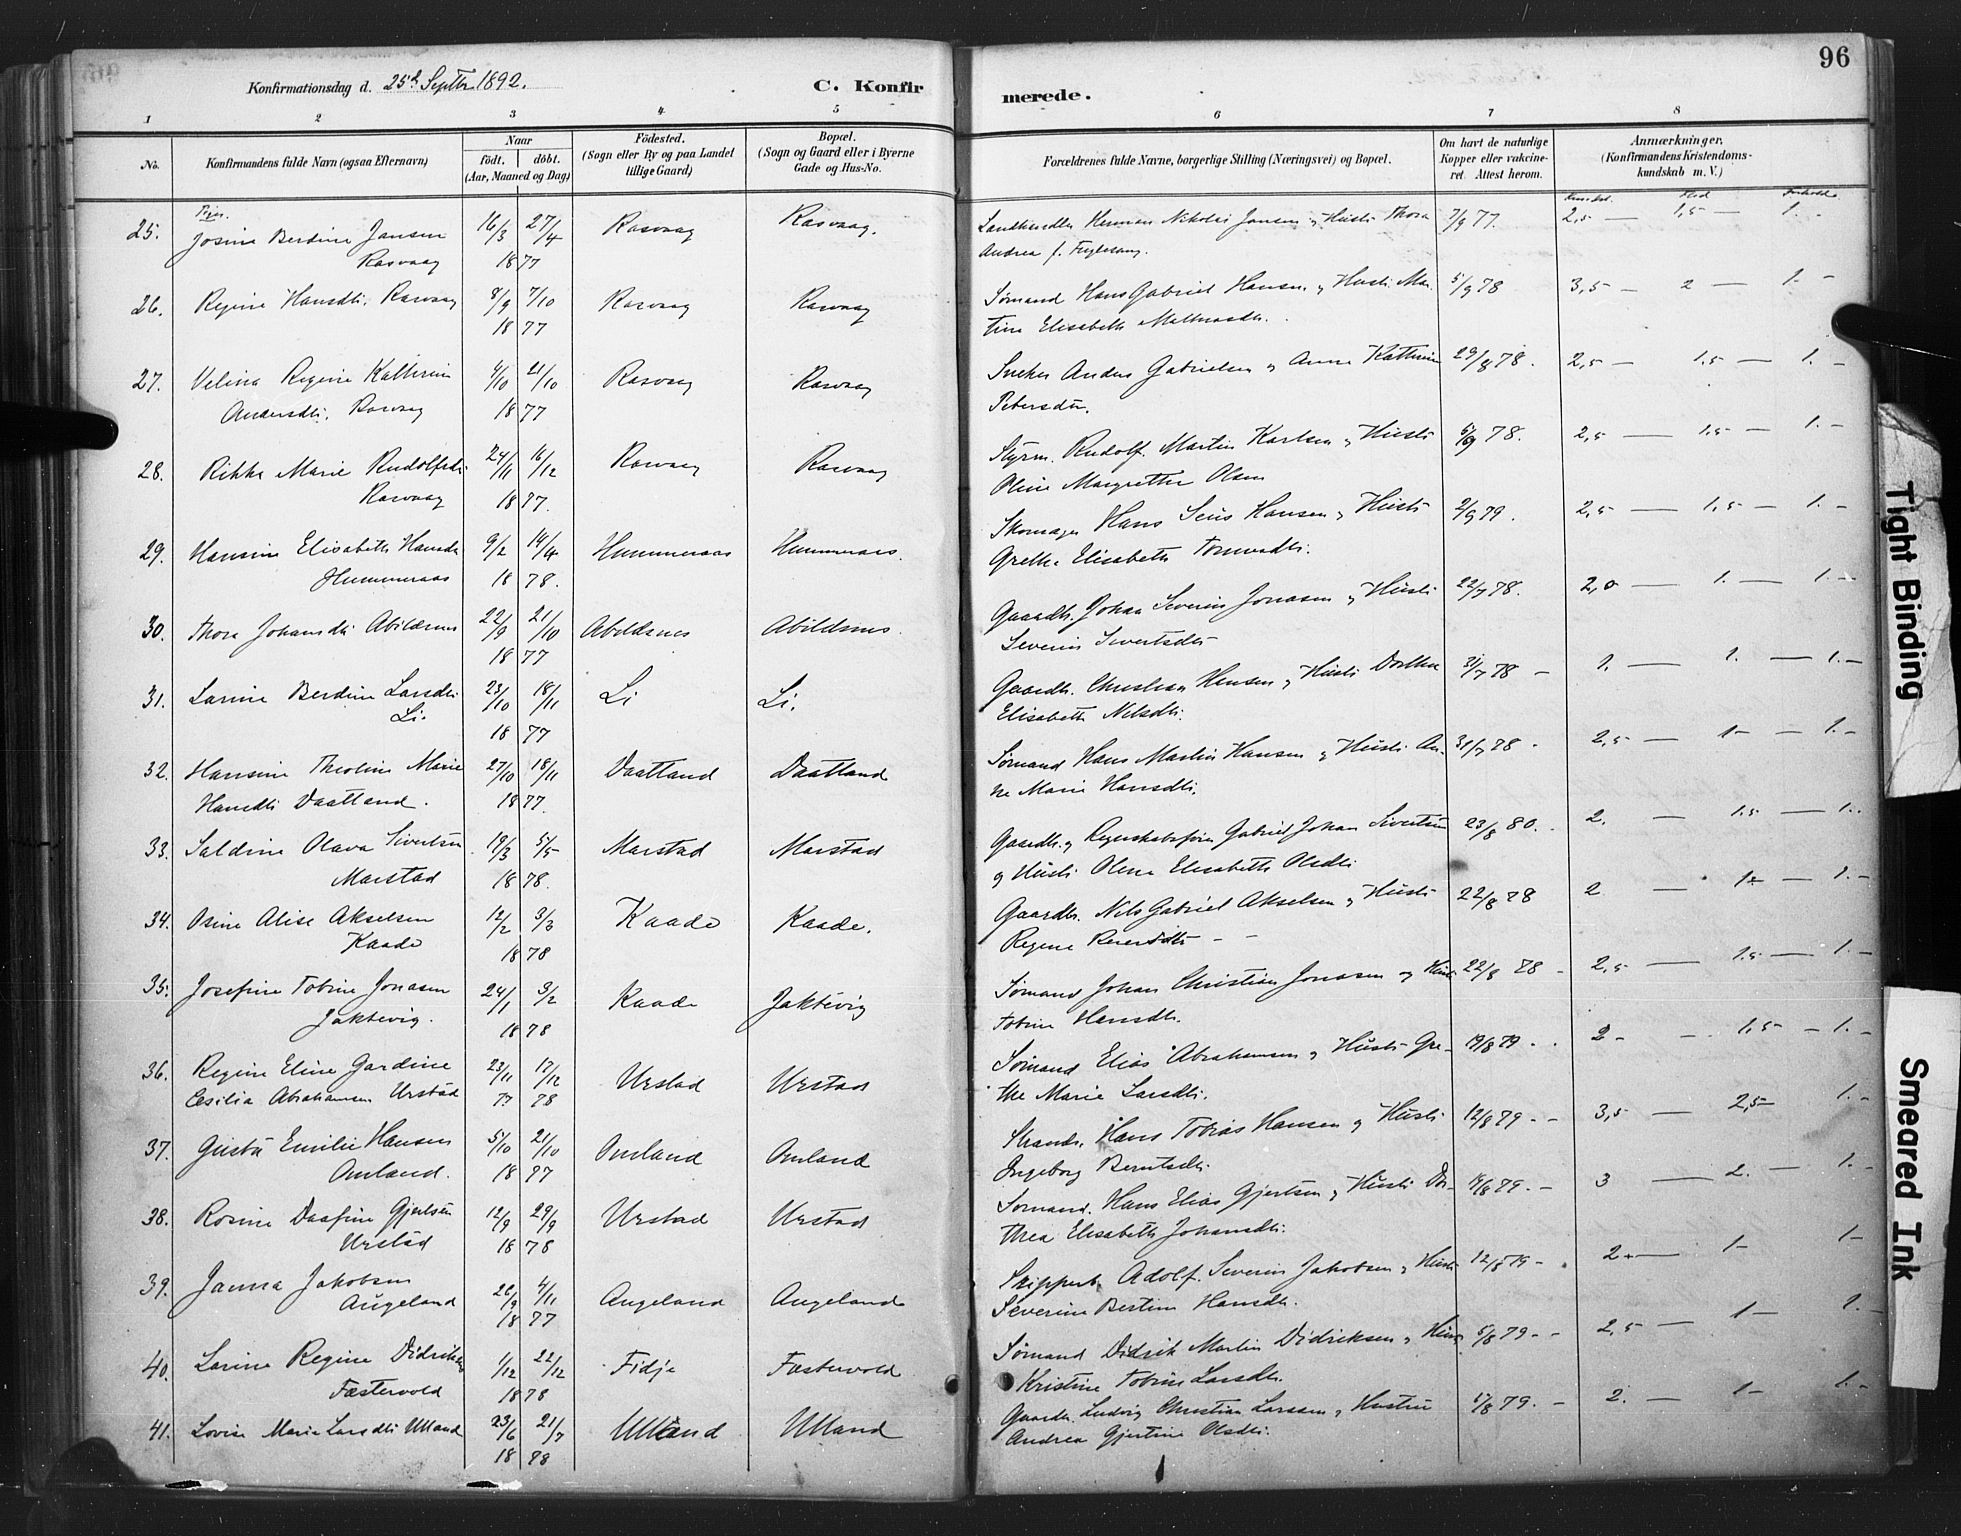 96
Konfirmationsdag d. 25de Septbr. 1892.
C. Konfirmerede.
1 2 3 4 5 6 7 8
No.
Konfirmandens fulde Navn (ogsaa Efternavn)
Naar
födt. döbt.
(Aar, Maaned og Dag)
Födested.
(Sogn eller By og paa Landet
tillige Gaard)
Bopæl.
(Sogn og Gaard eller i Byerne
Gade og Hus-No.
Forældrenes fulde Navne, borgerlige Stilling (Næringsvei) og Bopæl.
Om havt de naturlige
Kopper eller vakcine-
ret. Attest herom.
Anmærkninger.
(Konfirmandens Kristendoms-
kundskab m. V.)
Piger.
25. Josine Berdine Jansen 16/3 27/4 Rasvaag Rasvaag. Landhandler Herman Nikolai Jansen og Hustr Thora 7/9 77. 2,5 — 1,5 — 1. -
Rasvaag 18 77 Andrea f. Fuglesang.
26. Regine Hansdtr. Rasvaag 8/9 7/10 Rasvaag Rasvaag Sømand Hans Gabriel Hansen og Hustr. Mar- 5/9 78 3,5 — 2 — 1. -
18 77 tine Elisabeth
27. Velina Regine Kathrin 4/10 21/10 Rasvaag Rasvaag Snekker Anders Gabrielsen og Anne Kathrine 29/8 78. 2,5 — 1,5 — 1. -
Andersdtr. Rasvaag 18 77 Petersdtr.
28. Rikka Marie Rudolfsdtr. 24/11 16/12 Rasvaag Rasvaag Styrm. Rudolf Martin Karlsen og Hustr 5/9 78. 2,5 — 1,5 — 1. -
Rasvaag 18 77. Oline Margrethe Olsen
29. Hansine Elisabeth Hansdr 9/2 14/4 Hummeraas Hummeraas. Skomager Hans Hansen og Hustr 2/9 79. 2,5 — 1,5 — 1. -
Hummeraas 18 78. Grethe Elisabeth
30. Thora Johansdtr Abildsnes 22/9 21/10 Abildsnes Abildsnes. Gaardbr. Johan Severin Jonasen og Hustr 22/7 78. 2,0 — 1. — 1. -
18 77 Severine Sivertsdtr
31. Larine Berdine Larsdtr. 23/10 18/11 Li Li. Gaardbr. Christian Hansen og Hustr Dorthea 31/7 78 - 1. — 1. — 1. -
Li. 18 77 Elisabeth Nilsdtr.
32. Hansine Theoline Marie 27/10 18/11 Daatland Daatland Sømand Hans Martin Hansen og Hustr An- 31/7 78 - 2,5 — 1 - 1. -
Hansdtr Daatland. 18 77. ne Marie Hansdtr.
33. Saldine Olava Sivertsen 19/3 5/5 Marstad Marstad Gaardbr. og Regnskabsfører Gabriel Johan Sivertsen 23/8 80. 2. — 1,5 — 1. -
Marstad 18 78. og Hustr Olene Elisabeth Olsdtr
34. Osine Alise Akselsen 12/2 3/3 Kaade Kaade. Gaardbr. Nils Gabriel Akselsen og Hustr 22/8 78 2 — 1 — 1. -
Kaade 18 78 Regine
35. Josefine Tobine Jonasen 24/1 3/2 Kaade Jaktevig Sømand Johan Christian Jonasen og Hustr 22/8 78 - 2,5 — 1,5 — 1. -
Jaktevig. 18 78 Tobine Hansdtr.
36. Regine Eline Gardine 23/11 17/12 Urstad Urstad Sømand Elias Abrahamsen og Hustr Gre- 19/8 79 - 2 - 1,5 - 1. -
Cesilia Abrahamsen Urstad 77 78 the Marie Larsdtr.
37. Gusta Emilie Hansen 5/10 21/10 Omland Omland Strands. Hans Tobias Hansen og Hustr 12/8 79 - 3,5 — 2,5 — 1. -
Omland. 18 77 Ingeborg Berntsdtr.
38. Rosine Daafine Gjertsen 12/9 29/9 Urstad Urstad Sømand. Hans Elias Gjertsen og Hustr Do- 19/8 79. - 3 — 2. — 1. -
Urstad 18 78 rthea Elisabeth Johansdtr.
39. Janna Jakobsen 26/9 4/11 Augeland Augeland Skipperb. Adolf Severin Jakobsen og Hustr 12/8 79 - 2 + — 1 - 1 -
Augeland 18 77 Severine Bertine Hansdtr.
40. Larine Regine Didriksen 1/12 22/12 Fidje Fæstervold Sømand Didrik Martin Didriksen og Hustr 5/8 79 - 2,5 — 1 — 1. -
Fæstervold 18 78 Kristine Tobine Larsdtr.
41. Lovise Marie Larsdtr Ulland 23/6 21/7 Ulland Ulland Gaardbr. Ludvig Christian Larssen og Hustru 5/8 79. - 2. — 1 — 1. -
18 78 Andrea Gjertine Olsdtr.
Tight Binding
Smeared Ink